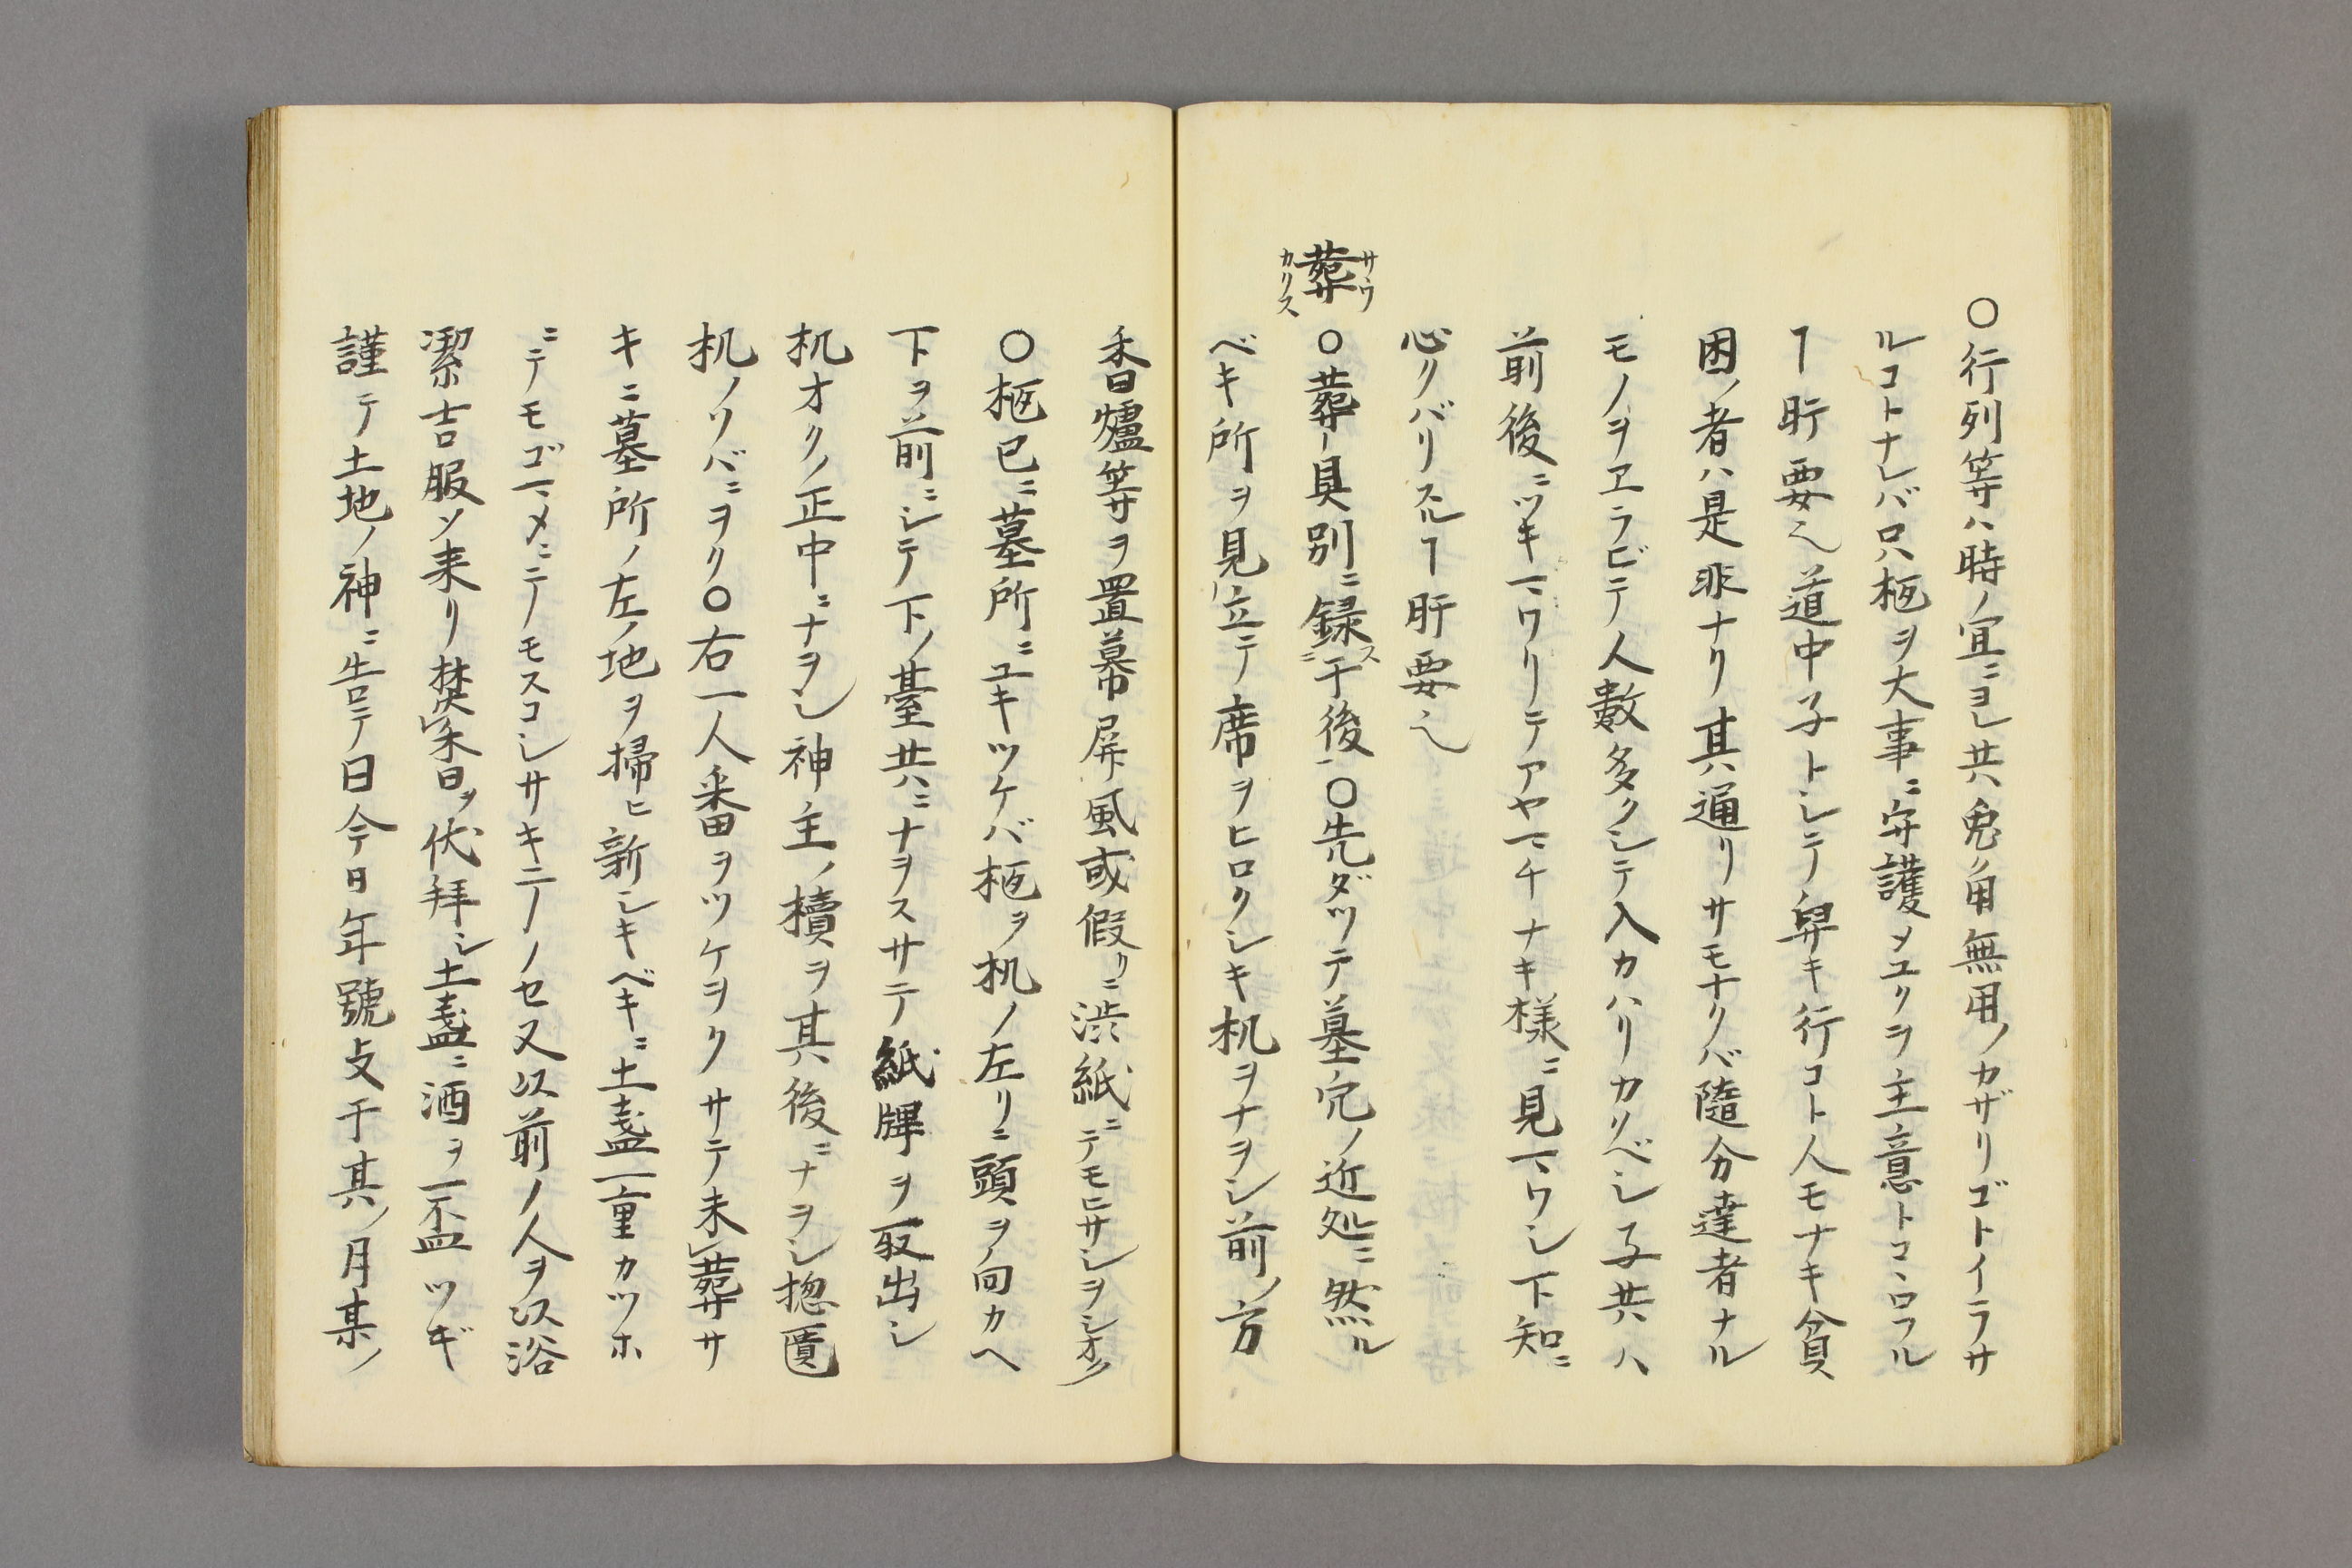 ○行列等ハ時ノ宜ニヨレ共兎ノ角無用ノカザリゴトイラサ
ルコトナレバ只柩ヲ大事ニ守護メユクヲ主意トコヽロフル
ヿ肝要也道中子トシテ舁キ行コト人モナキ貧
困ノ者ハ是非ナリ其通リサモナクバ隨分達者ナル
モノヲエラビテ人數多クシテ入カハリカクベシ子共ハ
前後ニツキマワリテアヤマチナキ様ニ見マワシ下知ニ
心クバリスルヿ肝要也
葬 サウ カクス ○葬具別ニ録ス于後○先ダツテ墓穴ノ近処ニ然ル
ベキ所ヲ見立テ席ヲヒロクシキ机ヲナヲシ前ノ方
香爐等ヲ置幕屏風或假リニ渋紙ニテモヒサシヲシオク
○柩已ニ墓所ニユキツケバ柩ヲ机ノ左リニ頭ヲ向カヘ
下ヲ前ニシテ下ノ臺共ニナヲスサテ紙牌ヲ取出シ
机オクノ正中ニナヲシ神主ノ櫝ヲ其後ニナヲシ揔匱
机ノソバニヲク○右一人番ヲツケヲクサテ未葬サ
キニ墓所ノ左ノ地ヲ掃ヒ新シキベキニ土盞一重カツホ
ニテモゴマメニテノモスコシサキニノセ又以前ノ人ヲ以浴
潔吉服ソ来リ焚香ヲ伏拜シ土盞ニ酒ヲ一盃ツギ
謹テ土地ノ神ニ告テ曰今日年號攴干其ノ月某ノ